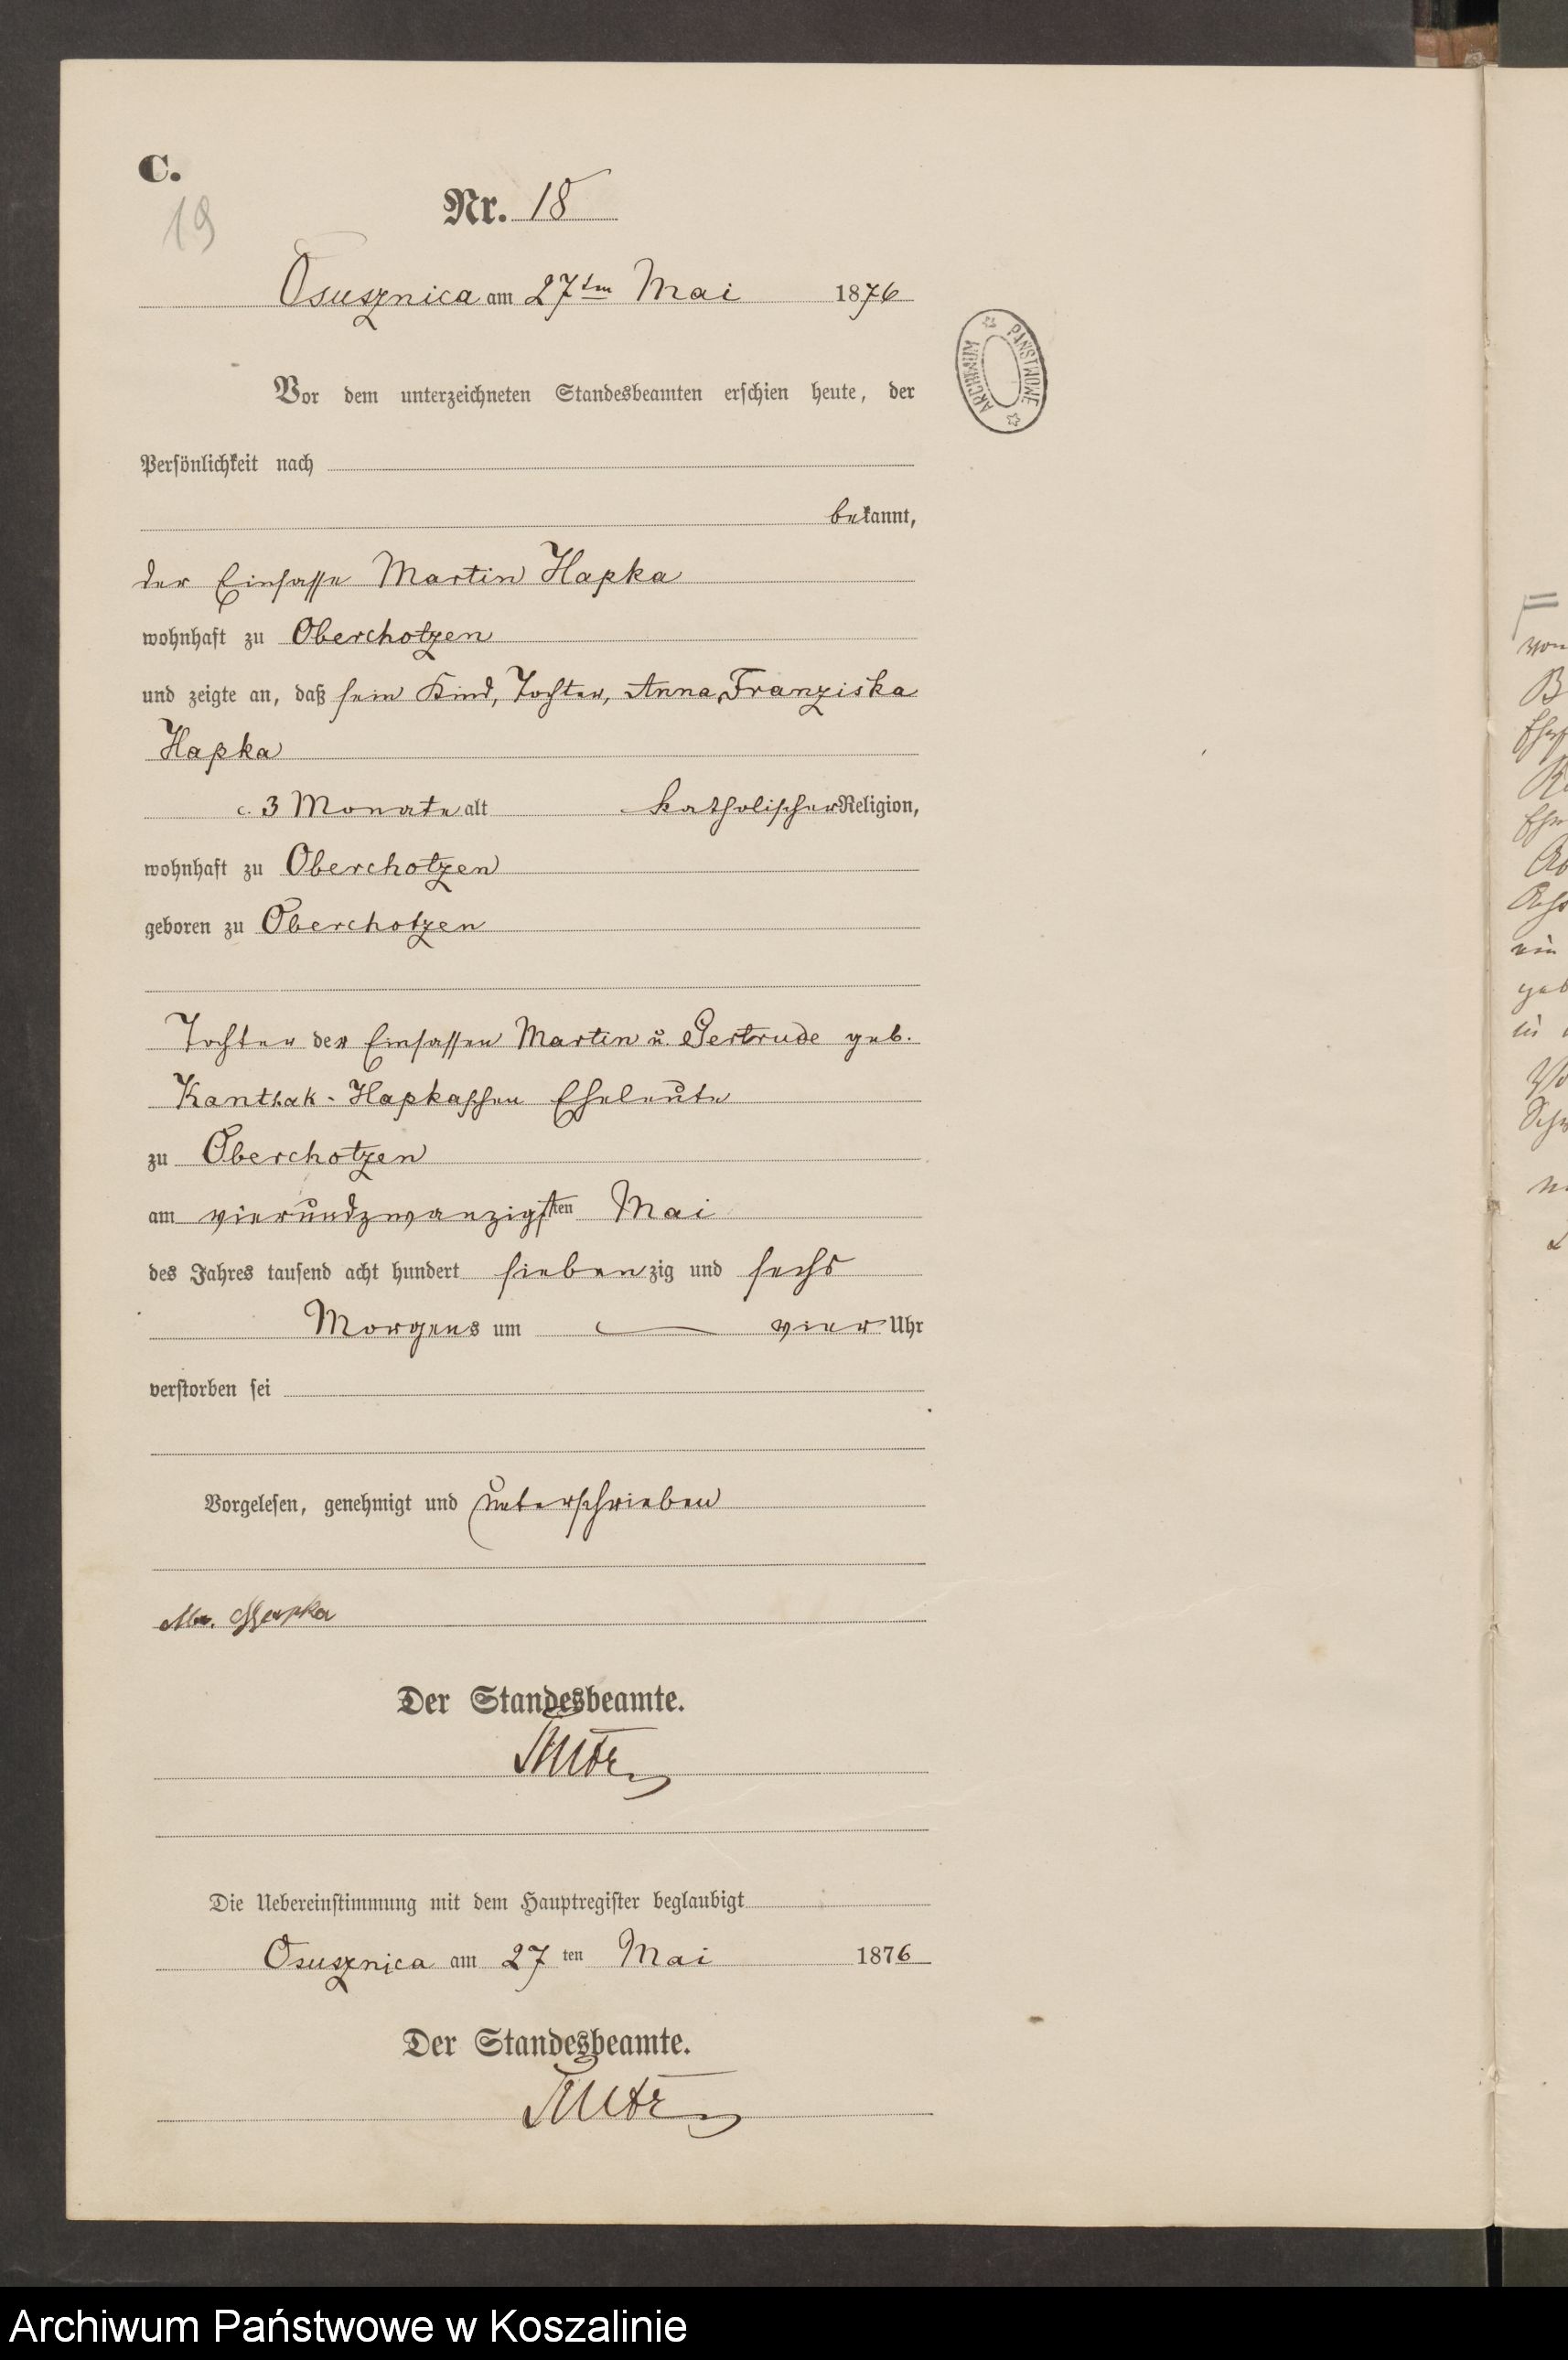 C.
19
Nr. 18
Osusznica am 27ten Mai 1876
Vor dem unterzeichneten Standesbeamten erschien heute, der
Persönlichkeit nach
bekannt,
der Einsasse Martin Hapka
wohnhaft zu Oberchotzen
und zeigte an, daß sein Kind, Tochter, Anna Franziska
Hapka
c. 3 Monate alt katholischer Religion,
wohnhaft zu Oberchotzen
geboren zu Oberchotzen
Tochter der Einsassen Martin u. Gertrude geb.
Kanthak-Hapkaschen Eheleute
zu Oberchotzen
am vierundzwanzigsten Mai
des Jahres tausend acht hundert siebenzig und sechs
Morgens um vier Uhr
verstorben sei
Vorgelesen, genehmigt und unterschrieben
Hapka
Der Standesbeamte.
Die Uebereinstimmung mit dem Hauptregister beglaubigt
Osusznica am 27ten Mai 1876
Der Standesbeamte.
ARCHIWUM PAŃSTWOWE
Archiwum Państwowe w Koszalinie